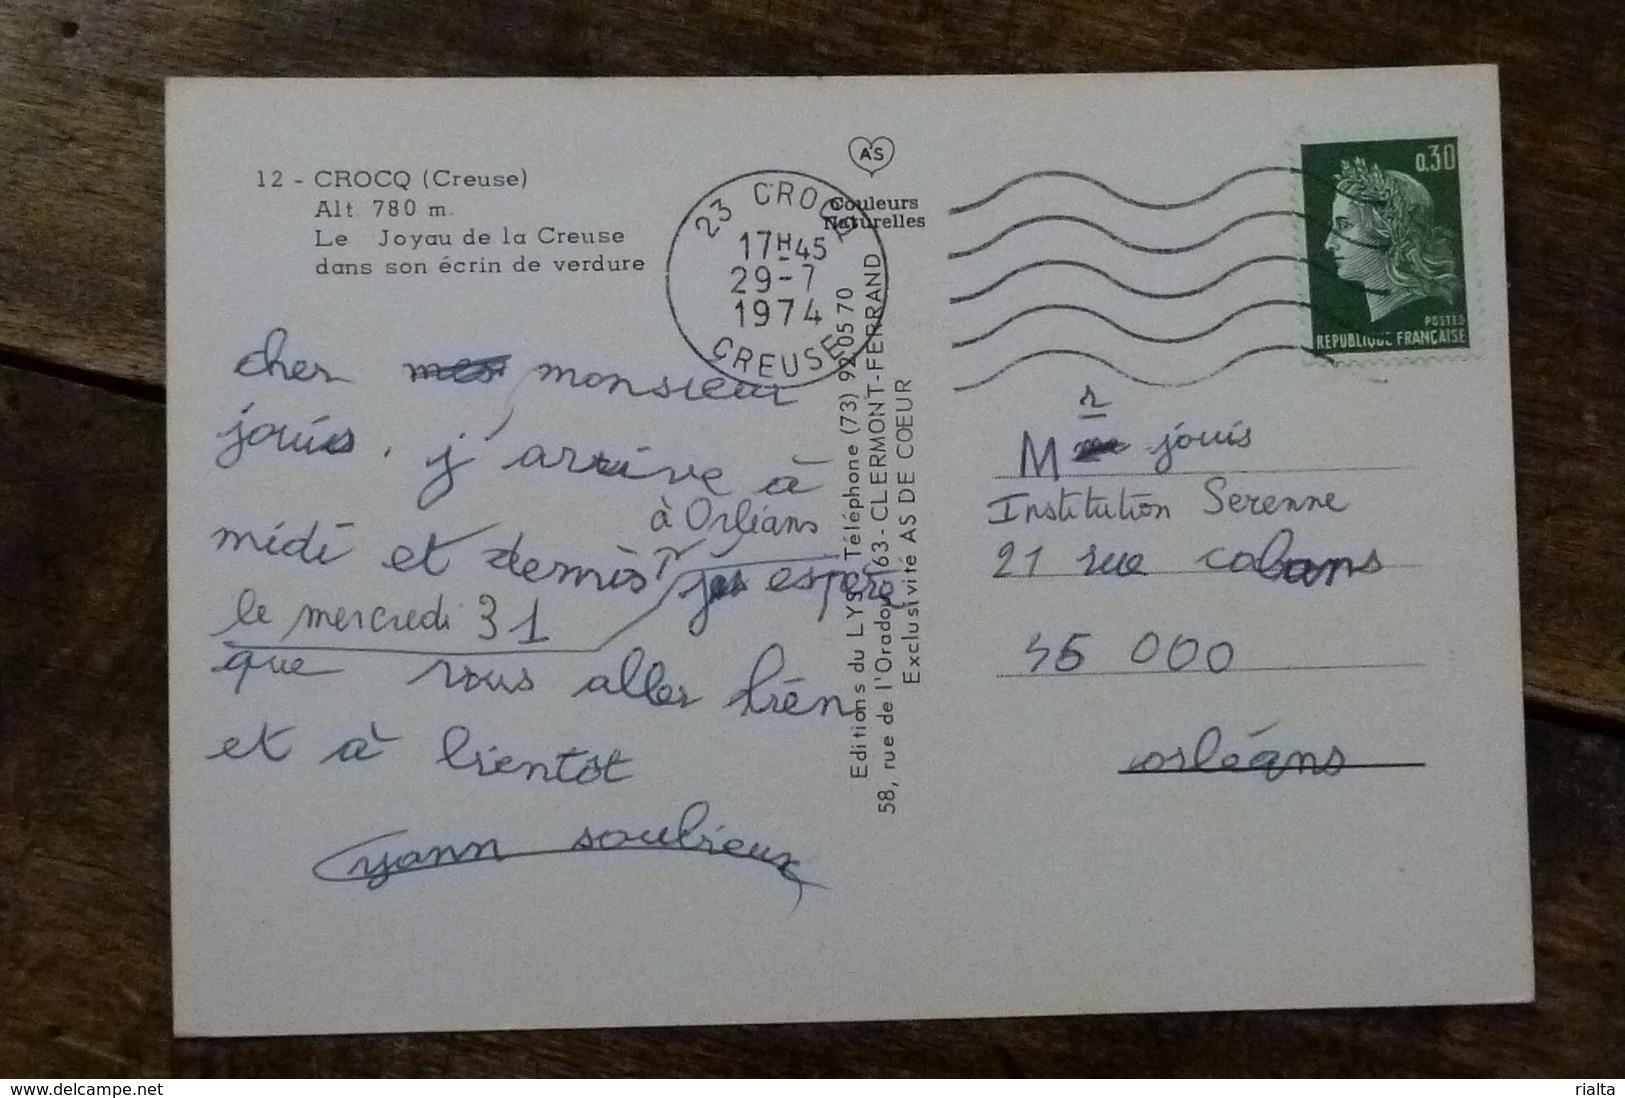 12 - CROCQ (Creuse)
Alt. 780 m.
Le Joyau de la Creuse
dans son écrin de verdure
23 CROCQ
17H45
29-7
1974
CREUSE
AS
Couleurs
Naturelles
0,30
POSTES
REPUBLIQUE FRANÇAISE
cher monsieur
jouis, j'arrive à
à Orléans
midi et demis espère
le mercredi 31
que vous aller bien
et à bientôt
yann soubrieux
Editions du LYS Téléphone (73) 92 05 70
58, rue de l'Oradou 63 - CLERMONT-FERRAND
Exclusivité AS DE COEUR
Mr jouis
Institution Serenne
21 rue cabans
45 000
orléans
www.delcampe.net
rialta